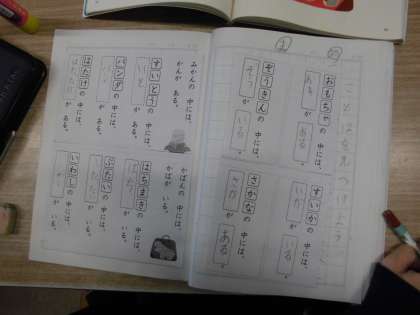 ことばを見つけよう
おもちゃの 中には、
が ある。
ぞうきんの 中には、
ぞう が いる。
すいかの 中には、
いか が いる。
さかなの 中には、
さか が ある。
みかんの 中には、
かんが ある。
すいとうの 中には、
いと が ある。
パンダの 中には、
が ある。
はたけの 中には、
が ある。
かばんの 中には、
かばが いる。
はちまきの 中には、
が いる。
ぶたいの 中には、
ぶた が いる。
いわしの 中には、
が いる。